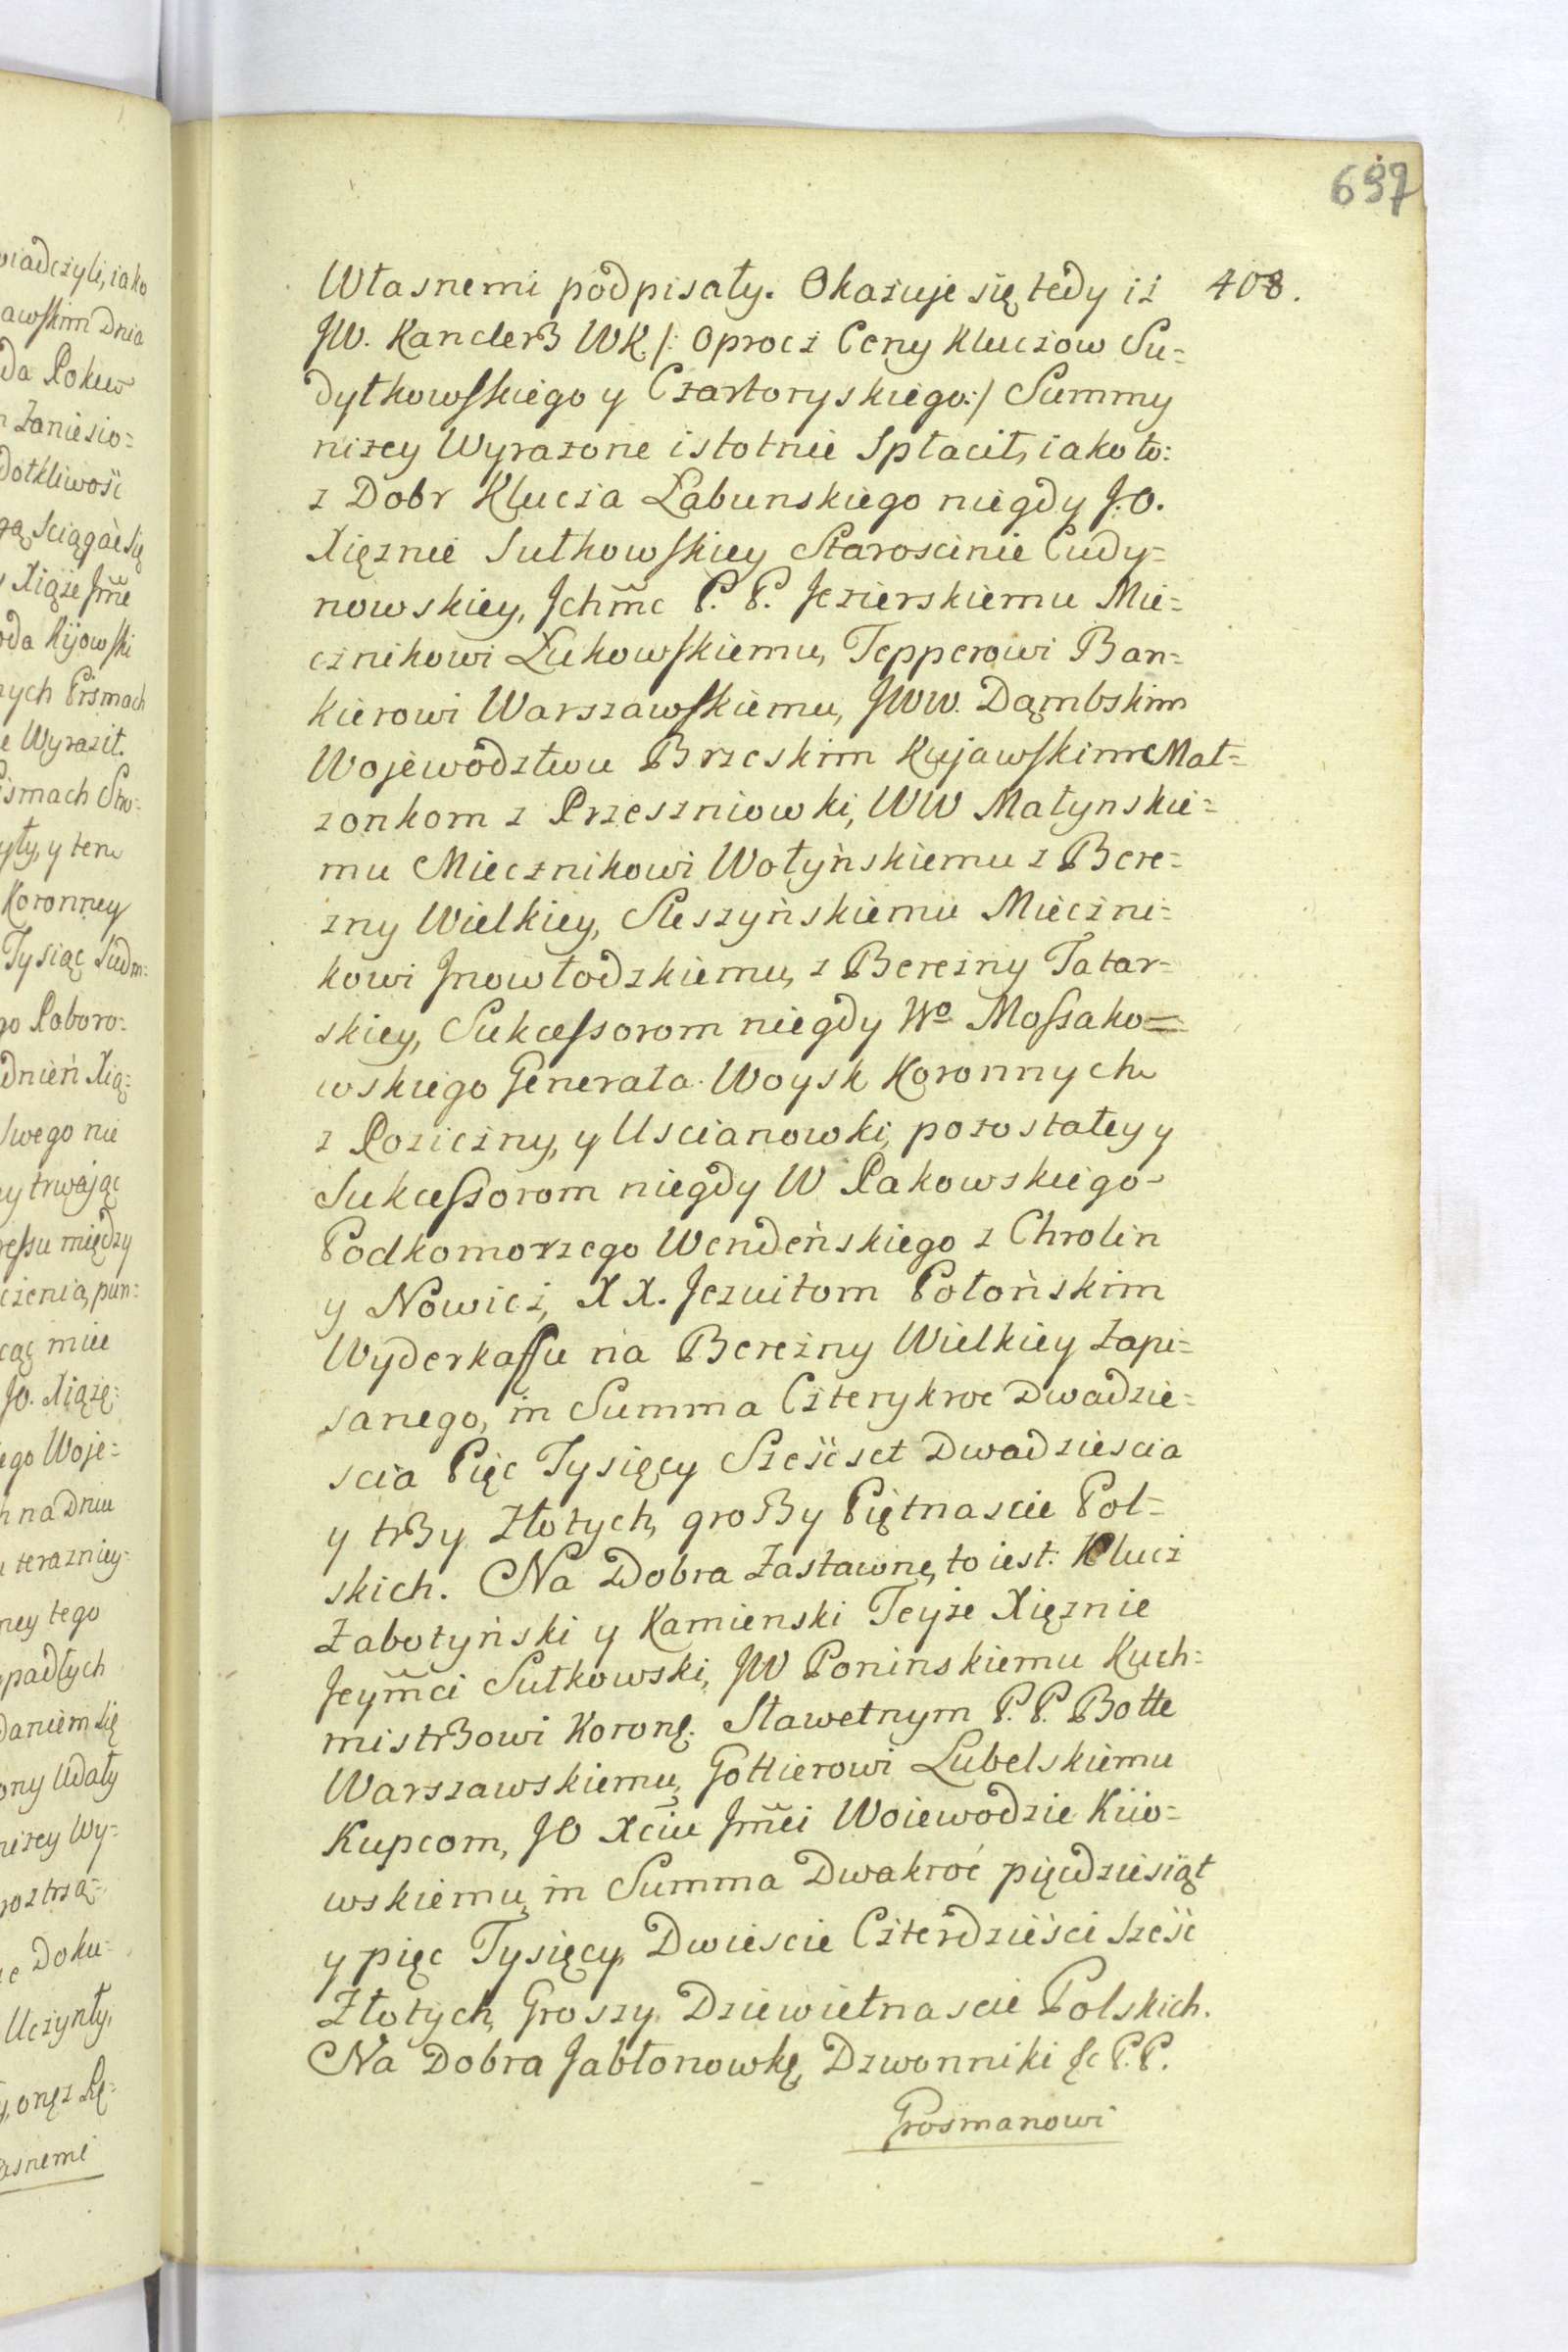 697
408.
Własnemi podpisały. Okazuje się tedy iż
JW. Kanclerz WK /: oprocz Ceny Kluczow Su=
dyłkowskiego y Czartoryskiego:/ Summy
niżey Wyrazone istotnie Spłacił, iako to:
z Dobr Klucza Łabunskiego niegdy J.O.
Xiężnie Sułkowskiey Starościnie Cudy=
nowskiey, Jchmc P. P. Jezierskiemu Mie=
cznikowi Łukowskiemu, Tepperowi Ban=
kierowi Warszawskiemu, JWW. Dąmbskim
Wojewodztwu Brzeskim Kujawskim Mał=
żonkom z Przeszniowki, WW Małynskie=
mu Miecznikowi Wołyńskiemu z Bere=
zny Wielkiey, Sleszyńskiemu Mieczni=
kowi Jnowłodzkiemu, z Berezny Tatar=
skiey, Sukcessorom niegdy Wo Mossako=
wskiego Generała Woysk Koronnych
z Poziczny, y Uscianowki, pozostałey y
Sukcessorom niegdy W Pakowskiego
Podkomorzego Wendeńskiego z Chrolin
y Nowicz, XX. Jezuitom Połońskim
Wyderkassu na Berezny Wielkiey zapi=
sanego, in Summa Czterykroc Dwadzie=
scia Pięc Tysięcy Sześćset Dwadziescia
y trzy Złotych, groszy Piętnascie Pol=
skich. Na Dobra Zastawne, to iest: Klucz
Zabotyński y Kamienski Teyże Xiężnie
Jeymci Sułkowski, JW Poninskiemu Kuch=
mistrzowi Koronę. Sławetnym P. P. Botte
Warszawskiemu, Gottierowi Lubelskiemu
Kupcom, JO Xciu Jmci Woiewodzie Kiio=
wskiemu, in Summa Dwakroć pięcdziesiąt
y pięc Tysięcy Dwieście Czterdzieści sześć
Złotych, Groszy Dziewiętnascie Polskich.
Na Dobra Jabłonowkę, Dzwonniki Jc P.P.
Grosmanowi
wiadczyli, iako
awskim Dnia
Zaniesio=
Dotkliwość
Sciągać Się
Xiąże Jmć
oda Kijowski
nych Pismach
e Wyraził.
ismach Sw=
yły, y ten
Koronney
Tysiąc Siedm=
go Poboro=
dnień Xią=
Swego nie
y trwając
ressu między
czenia, pun=
JO. Xiążę=
ego Woje=
na Dniu
terazniey=
ney tego
padłych
daniem się
ony Udały
niżey Wy=
oztrzą=
e Doku=
Uczynły,
asnemi